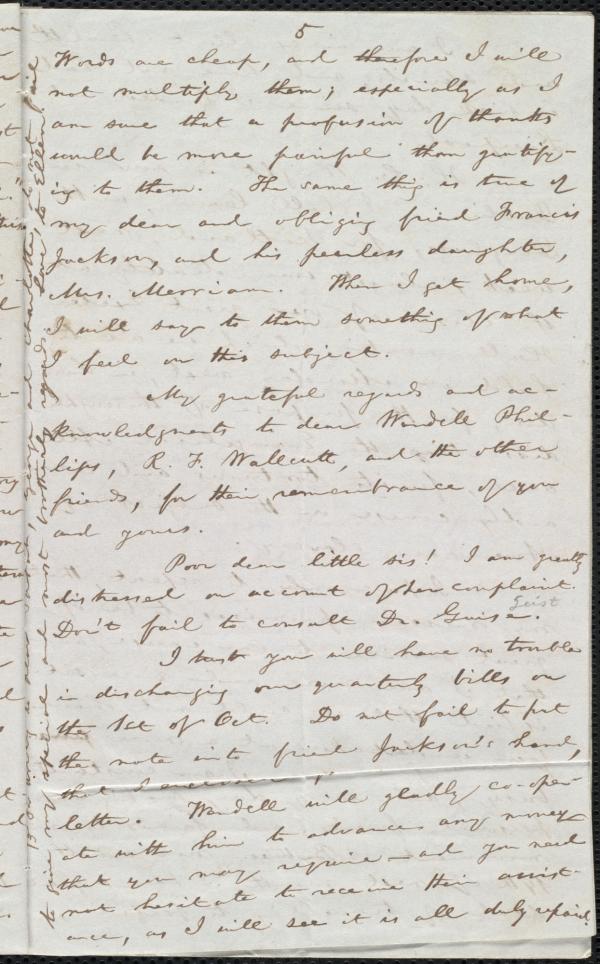 5
Words are cheap, and therefore I will
not multiply them; especially as I
am sure that a profusion of thanks
would be more painful than gratify-
ing to them. The same thing is true of
my dear and obliging friend Francis
Jackson, and his peerless daughter,
Mrs. Merriam. When I get home,
I will say to them something of what
I feel on this subject.
My grateful regards and ac-
knowledgments to dear Wendell Phil-
lips, R. F. Wallcutt, and the other
friends, for their remembrance of you
and yours.
Poor dear little sis! I am greatly
distressed on account of her complaint.
Geist
Don't fail to consult Dr. Guise.
I trust you will have no trouble
in discharging our quarterly bills on
the 1st of Oct. Do not fail to put
the note into friend Jackson's hand,
that I
letter. Wendell will gladly co-oper-
ate with him to advance any money
that you may require—and you need
not hesitate to receive their assist-
ance, as I will see it is all duly repaid.
to give my special and most brotherly regards
love to